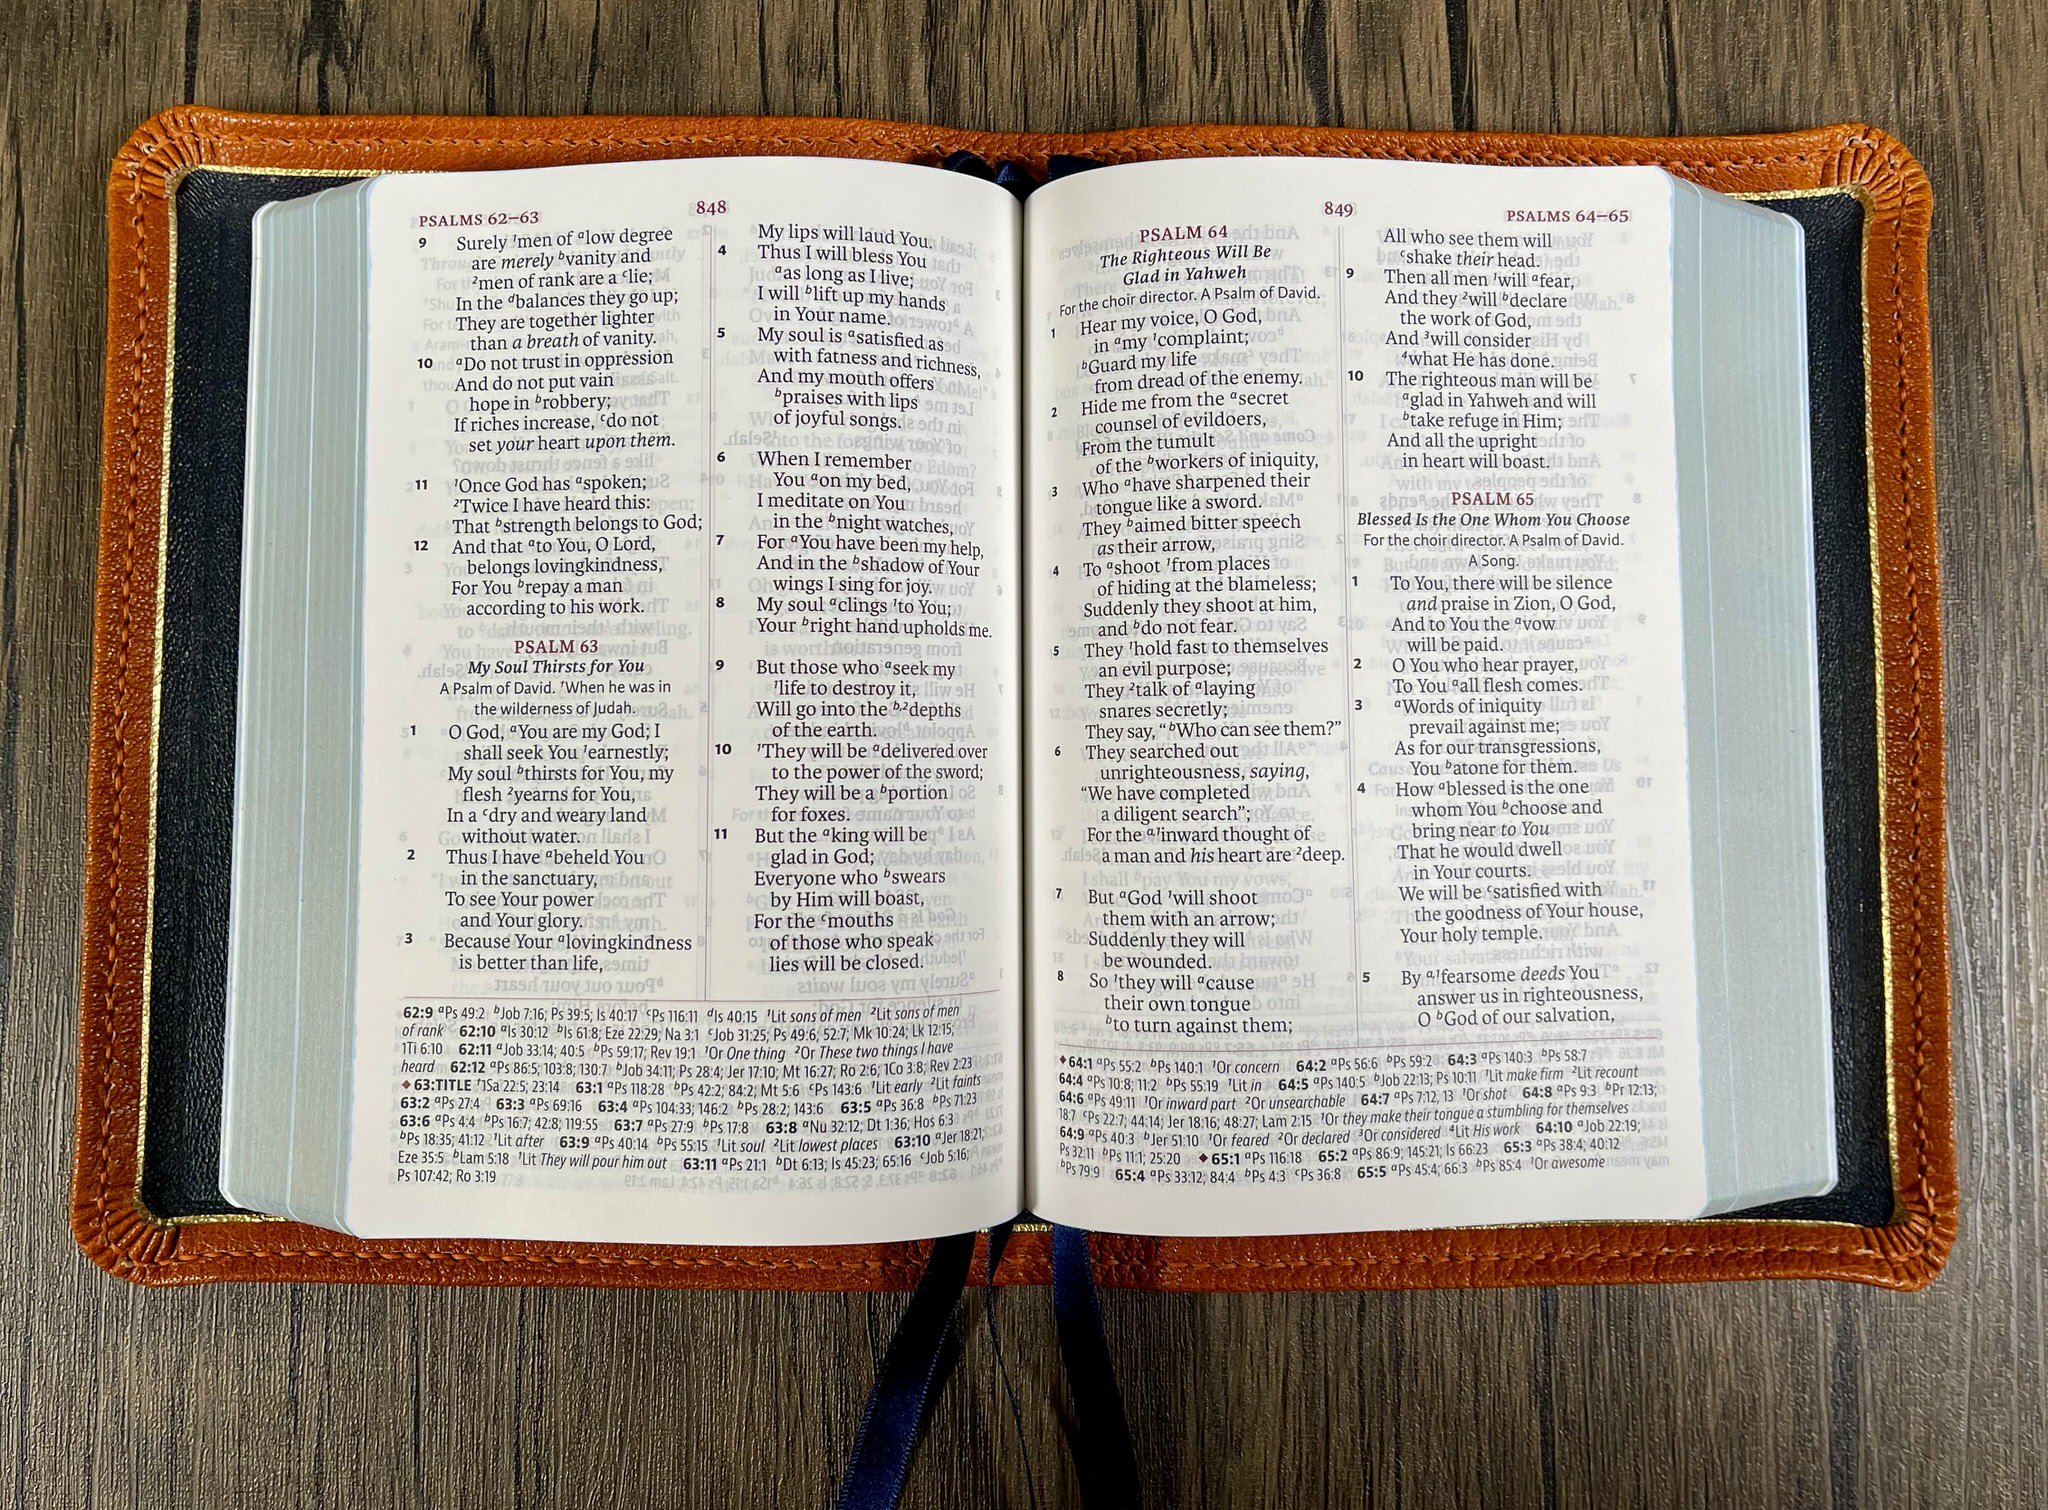 PSALMS 62–63
848
9 Surely ¹men of ᵃlow degree
are merely ᵇvanity and
²men of rank are a ᶜlie;
In the ᵈbalances they go up;
They are together lighter
than a breath of vanity.
10 ᵃDo not trust in oppression
And do not put vain
hope in ᵇrobbery;
If riches increase, ᶜdo not
set your heart upon them.
11 ¹Once God has ᵃspoken;
²Twice I have heard this:
That ᵇstrength belongs to God;
12 And that ᵃto You, O Lord,
belongs lovingkindness,
For You ᵇrepay a man
according to his work.
PSALM 63
My Soul Thirsts for You
A Psalm of David. ¹When he was in
the wilderness of Judah.
1 O God, ᵃYou are my God; I
shall seek You ¹earnestly;
My soul ᵇthirsts for You, my
flesh ²yearns for You,
In a ᶜdry and weary land
without water.
2 Thus I have ᵃbeheld You
in the sanctuary,
To see Your power
and Your glory.
3 Because Your ᵃlovingkindness
is better than life,
My lips will laud You.
4 Thus I will bless You
ᵃas long as I live;
I will ᵇlift up my hands
in Your name.
5 My soul is ᵃsatisfied as
with fatness and richness,
And my mouth offers
ᵇpraises with lips
of joyful songs.
6 When I remember
You ᵃon my bed,
I meditate on You
in the ᵇnight watches,
7 For ᵃYou have been my help,
And in the ᵇshadow of Your
wings I sing for joy.
8 My soul ᵃclings ¹to You;
Your ᵇright hand upholds me.
9 But those who ᵃseek my
¹life to destroy it,
Will go into the ᵇ,²depths
of the earth.
10 ¹They will be ᵃdelivered over
to the power of the sword;
They will be a ᵇportion
for foxes.
11 But the ᵃking will be
glad in God;
Everyone who ᵇswears
by Him will boast,
For the ᶜmouths
of those who speak
lies will be closed.
62:9 ᵃPs 49:2 ᵇJob 7:16; Ps 39:5; Is 40:17 ᶜPs 116:11 ᵈIs 40:15 ¹Lit sons of men ²Lit sons of men
of rank 62:10 ᵃIs 30:12 ᵇIs 61:8; Eze 22:29; Na 3:1 ᶜJob 31:25; Ps 49:6; 52:7; Mk 10:24; Lk 12:15;
1Ti 6:10 62:11 ᵃJob 33:14; 40:5 ᵇPs 59:17; Rev 19:1 ¹Or One thing ²Or These two things I have
heard 62:12 ᵃPs 86:5; 103:8; 130:7 ᵇJob 34:11; Ps 28:4; Jer 17:10; Mt 16:27; Ro 2:6; 1Co 3:8; Rev 2:23
◆ 63:TITLE ¹1Sa 22:5; 23:14 63:1 ᵃPs 118:28 ᵇPs 42:2; 84:2; Mt 5:6 ᶜPs 143:6 ¹Lit early ²Lit faints
63:2 ᵃPs 27:4 63:3 ᵃPs 69:16 63:4 ᵃPs 104:33; 146:2 ᵇPs 28:2; 143:6 63:5 ᵃPs 36:8 ᵇPs 71:23
63:6 ᵃPs 4:4 ᵇPs 16:7; 42:8; 119:55 63:7 ᵃPs 27:9 ᵇPs 17:8 63:8 ᵃNu 32:12; Dt 1:36; Hos 6:3
ᵇPs 18:35; 41:12 ¹Lit after 63:9 ᵃPs 40:14 ᵇPs 55:15 ¹Lit soul ²Lit lowest places 63:10 ᵃJer 18:21;
Eze 35:5 ᵇLam 5:18 ¹Lit They will pour him out 63:11 ᵃPs 21:1 ᵇDt 6:13; Is 45:23; 65:16 ᶜJob 5:16;
Ps 107:42; Ro 3:19
849
PSALMS 64–65
PSALM 64
The Righteous Will Be
Glad in Yahweh
For the choir director. A Psalm of David.
1 Hear my voice, O God,
in ᵃmy ¹complaint;
ᵇGuard my life
from dread of the enemy.
2 Hide me from the ᵃsecret
counsel of evildoers,
From the tumult
of the ᵇworkers of iniquity,
3 Who ᵃhave sharpened their
tongue like a sword.
They ᵇaimed bitter speech
as their arrow,
4 To ᵃshoot ¹from places
of hiding at the blameless;
Suddenly they shoot at him,
and ᵇdo not fear.
5 They ¹hold fast to themselves
an evil purpose;
They ²talk of ᵃlaying
snares secretly;
They say, “ᵇWho can see them?”
6 They searched out
unrighteousness, saying,
“We have completed
a diligent search”;
For the ᵃ,¹inward thought of
a man and his heart are ²deep.
7 But ᵃGod ¹will shoot
them with an arrow;
Suddenly they will
be wounded.
8 So ¹they will ᵃcause
their own tongue
ᵇto turn against them;
All who see them will
ᶜshake their head.
9 Then all men ¹will ᵃfear,
And they ²will ᵇdeclare
the work of God,
And ³will consider
⁴what He has done.
10 The righteous man will be
ᵃglad in Yahweh and will
ᵇtake refuge in Him;
And all the upright
in heart will boast.
PSALM 65
Blessed Is the One Whom You Choose
For the choir director. A Psalm of David.
A Song.
1 To You, there will be silence
and praise in Zion, O God,
And to You the ᵃvow
will be paid.
2 O You who hear prayer,
To You ᵃall flesh comes.
3 ᵃWords of iniquity
prevail against me;
As for our transgressions,
You ᵇatone for them.
4 How ᵃblessed is the one
whom You ᵇchoose and
bring near to You
That he would dwell
in Your courts.
We will be ᶜsatisfied with
the goodness of Your house,
Your holy temple.
5 By ᵃ,¹fearsome deeds You
answer us in righteousness,
O ᵇGod of our salvation,
◆ 64:1 ᵃPs 55:2 ᵇPs 140:1 ¹Or concern 64:2 ᵃPs 56:6 ᵇPs 59:2 64:3 ᵃPs 140:3 ᵇPs 58:7
64:4 ᵃPs 10:8; 11:2 ᵇPs 55:19 ¹Lit in 64:5 ᵃPs 140:5 ᵇJob 22:13; Ps 10:11 ¹Lit make firm ²Lit recount
64:6 ᵃPs 49:11 ¹Or inward part ²Or unsearchable 64:7 ᵃPs 7:12, 13 ¹Or shot 64:8 ᵃPs 9:3 ᵇPr 12:13;
18:7 ᶜPs 22:7; 44:14; Jer 18:16; 48:27; Lam 2:15 ¹Or they make their tongue a stumbling for themselves
64:9 ᵃPs 40:3 ᵇJer 51:10 ¹Or feared ²Or declared ³Or considered ⁴Lit His work 64:10 ᵃJob 22:19;
Ps 32:11 ᵇPs 11:1; 25:20 ◆ 65:1 ᵃPs 116:18 65:2 ᵃPs 86:9; 145:21; Is 66:23 65:3 ᵃPs 38:4; 40:12
ᵇPs 79:9 65:4 ᵃPs 33:12; 84:4 ᵇPs 4:3 ᶜPs 36:8 65:5 ᵃPs 45:4; 66:3 ᵇPs 85:4 ¹Or awesome